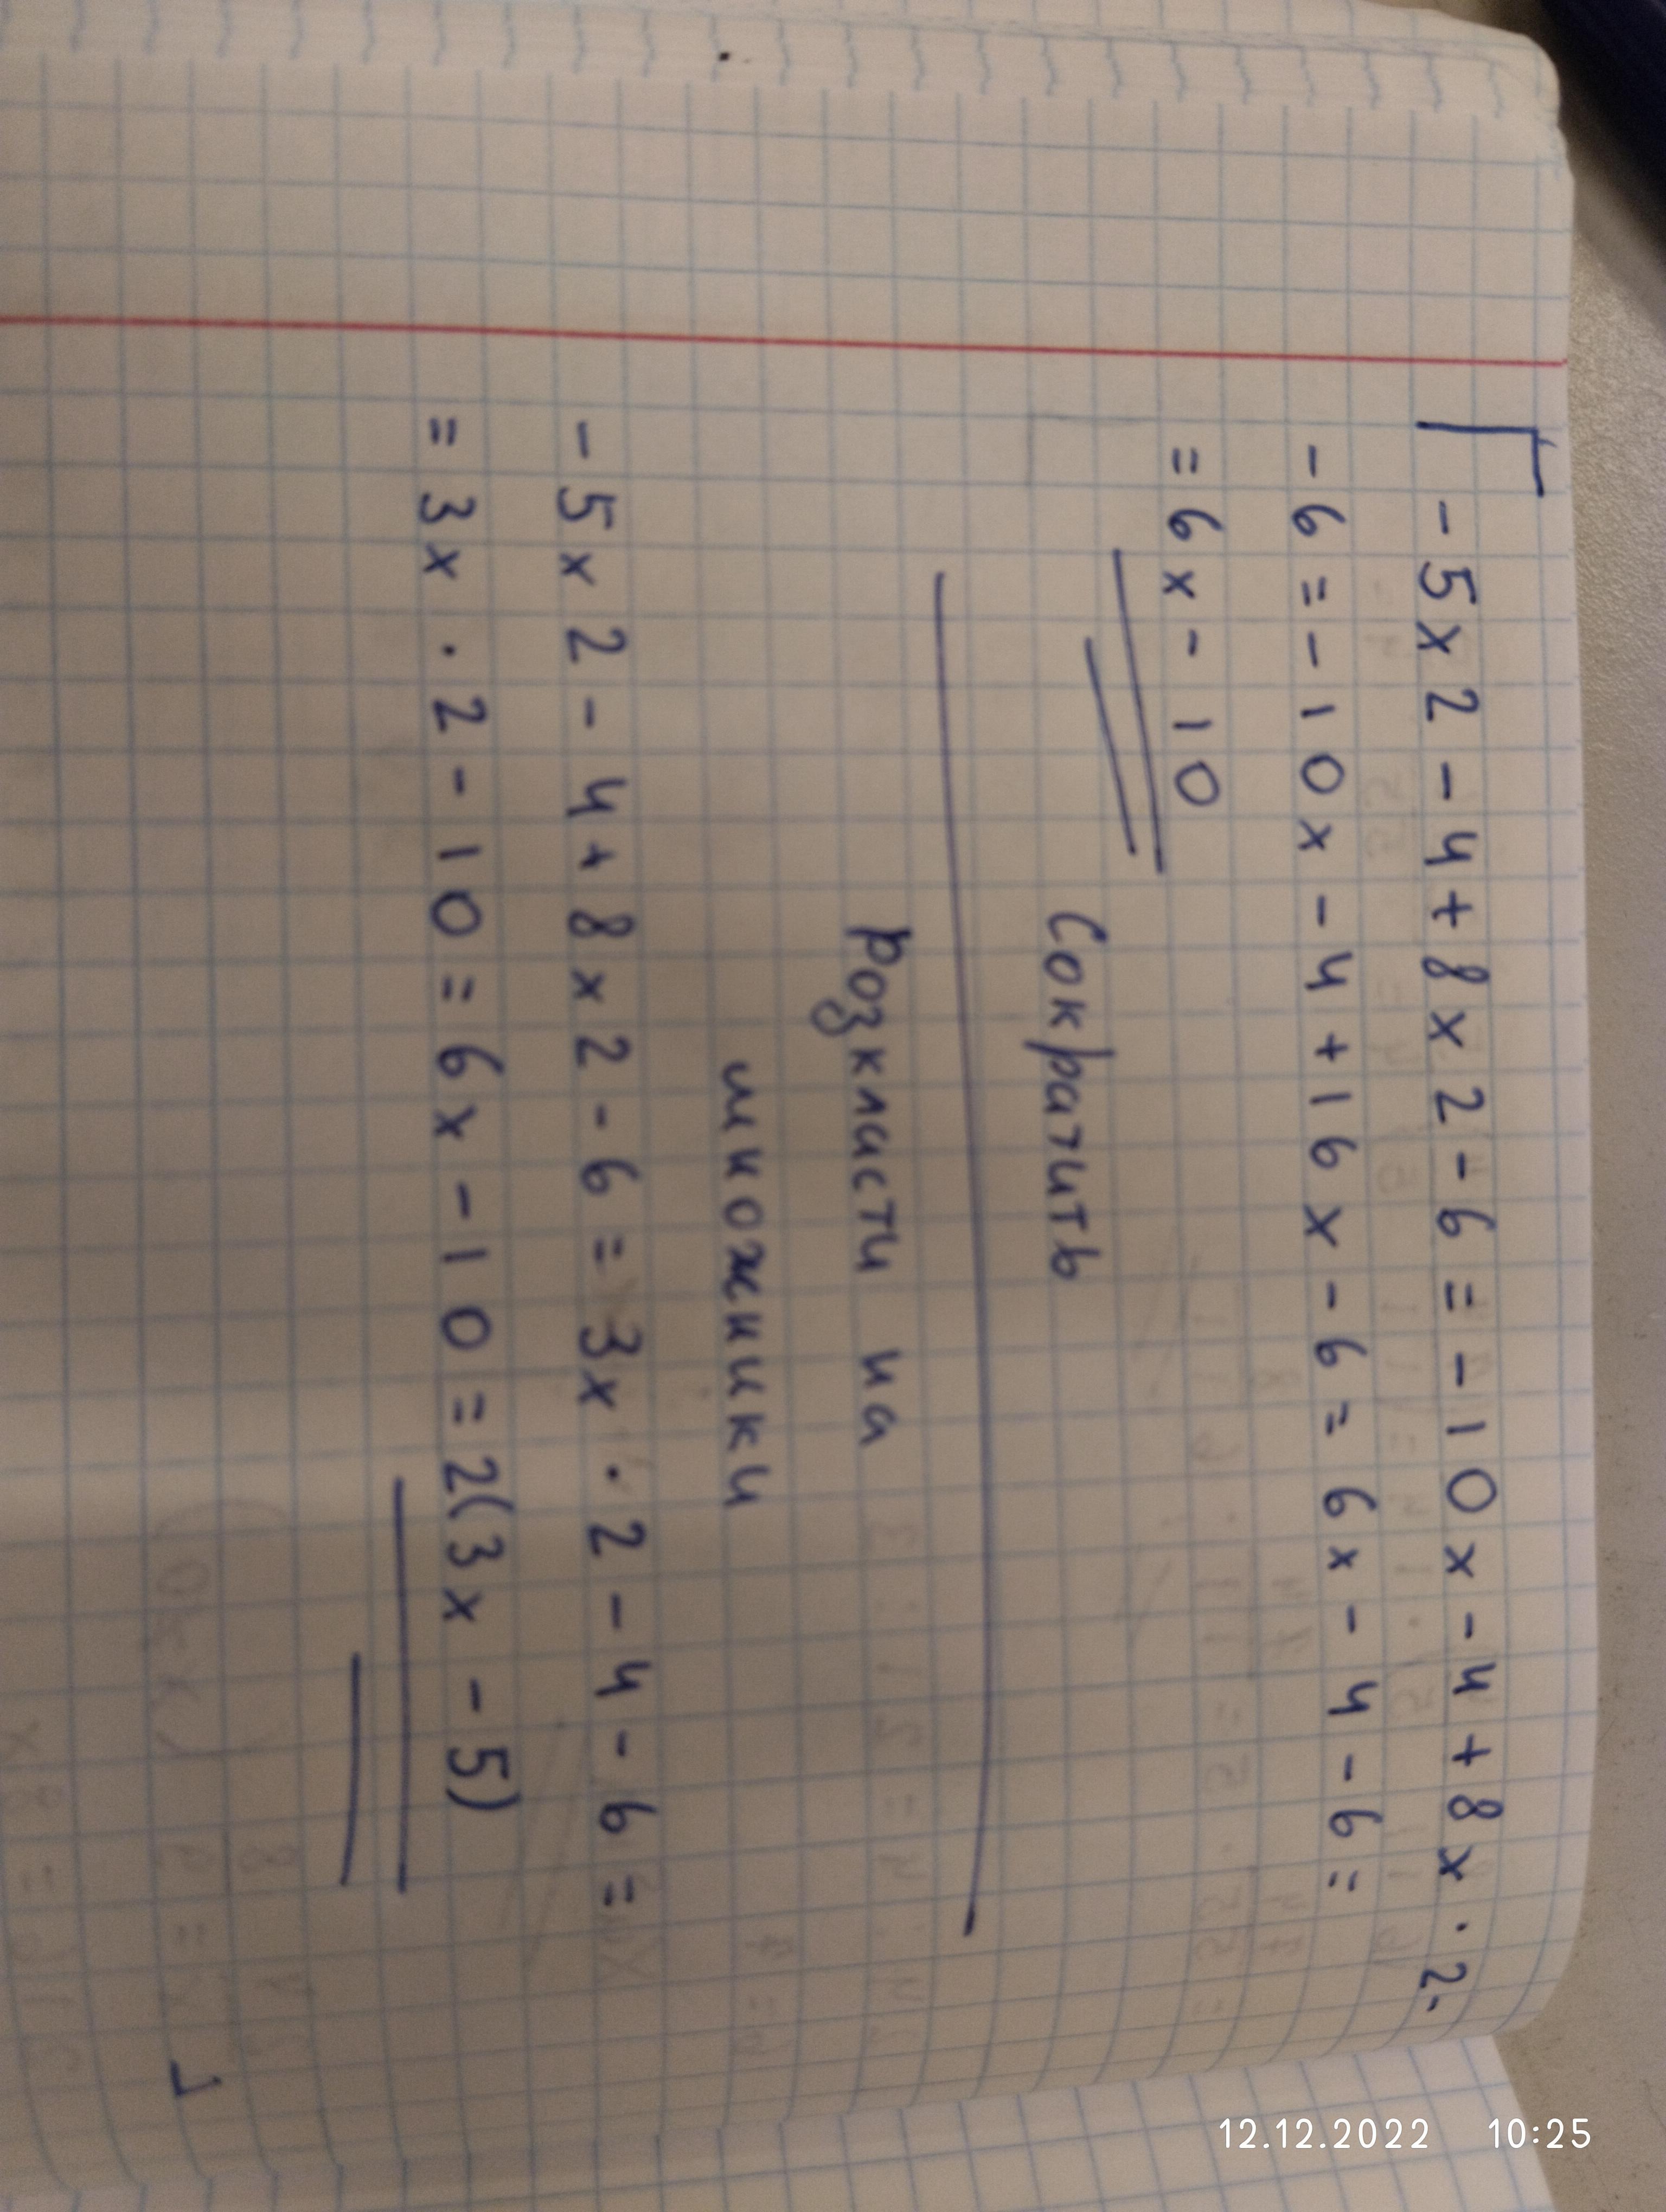 - 5x2 - 4 + 8x2 - 6 = - 10x - 4 + 8x · 2 -
- 6 = - 10x - 4 + 16x - 6 = 6x - 4 - 6 =
= 6x - 10
Сократить
Розкласти на
множники
- 5x2 - 4 + 8x2 - 6 = 3x · 2 - 4 - 6 =
= 3x · 2 - 10 = 6x - 10 = 2(3x - 5)
12.12.2022 10:25